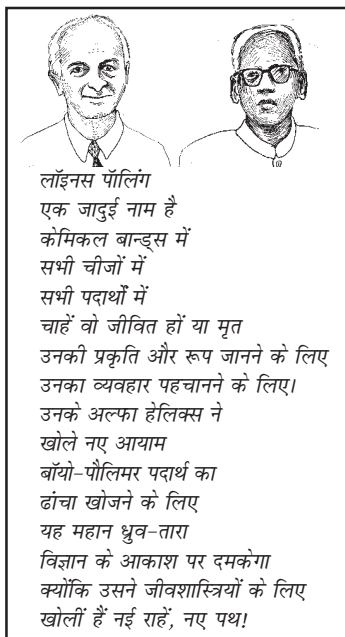 लॉइनस पॉलिंग
एक जादुई नाम है
केमिकल बान्ड्स में
सभी चीजों में
सभी पदार्थों में
चाहें वो जीवित हों या मृत
उनकी प्रकृति और रूप जानने के लिए
उनका व्यवहार पहचानने के लिए।
उनके अल्फा हेलिक्स ने
खोले नए आयाम
बॉयो-पौलिमर पदार्थ का
ढांचा खोजने के लिए
यह महान ध्रुव-तारा
विज्ञान के आकाश पर दमकेगा
क्योंकि उसने जीवशास्त्रियों के लिए
खोलीं हैं नई राहें, नए पथ!